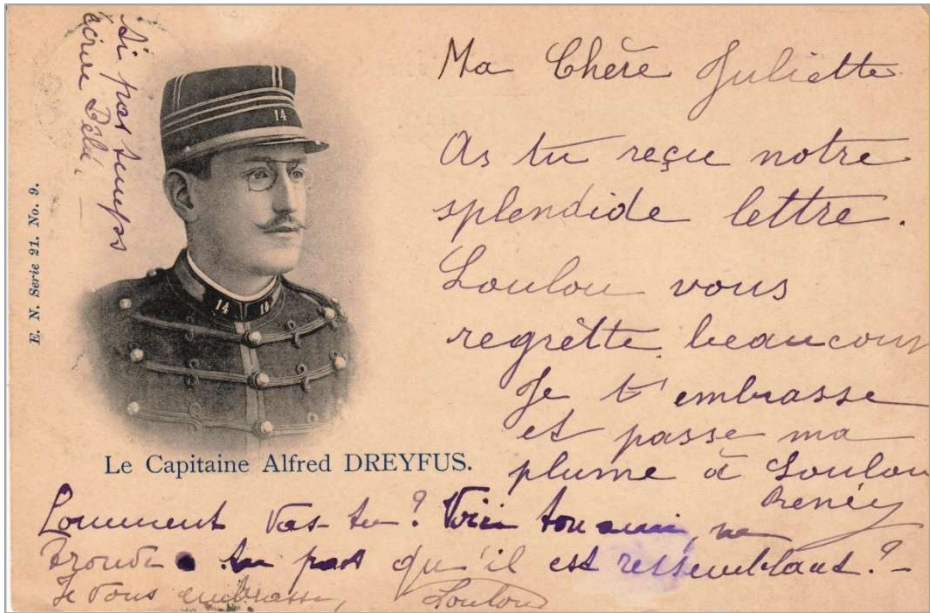 Si pas temps
écrire Bébé.
E. N. Serie 21. No. 9.
14
14 14
Le Capitaine Alfred DREYFUS.
Ma Chère Juliette
As tu reçu notre
splendide lettre.
Loulou vous
regrètte beaucoup
Je t'embrasse
et passe ma
plume à Loulou
Renée
Comment vas-tu? Voici ton ami, ne
trouve tu pas qu'il est ressemblant?-
Je vous embrasse, Loulou